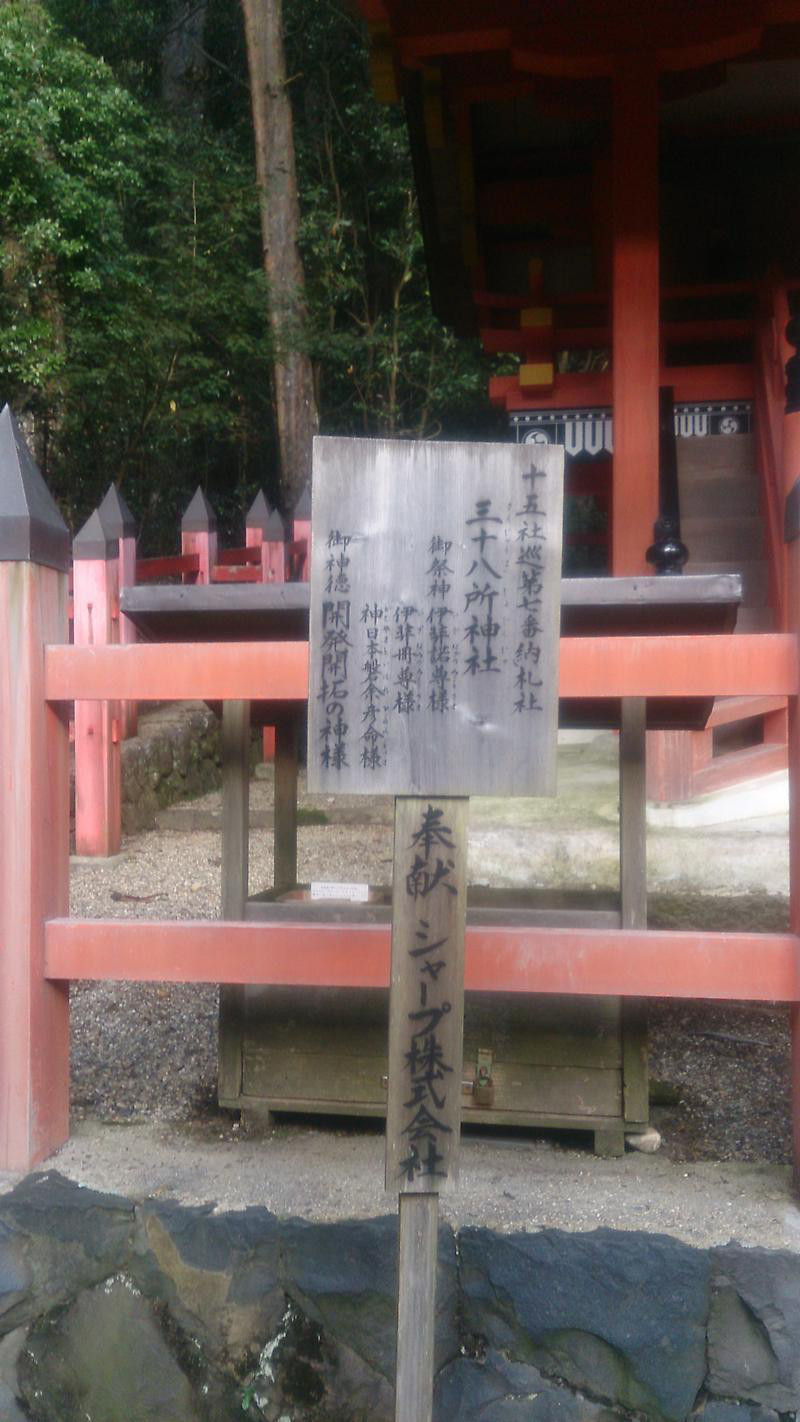 十五社巡第七番納札社
三十八所神社
御祭神 伊弉諾尊様
伊弉冊尊様
神日本磐余彦命様
御神徳 開発開拓の神様
奉献 シャープ株式会社